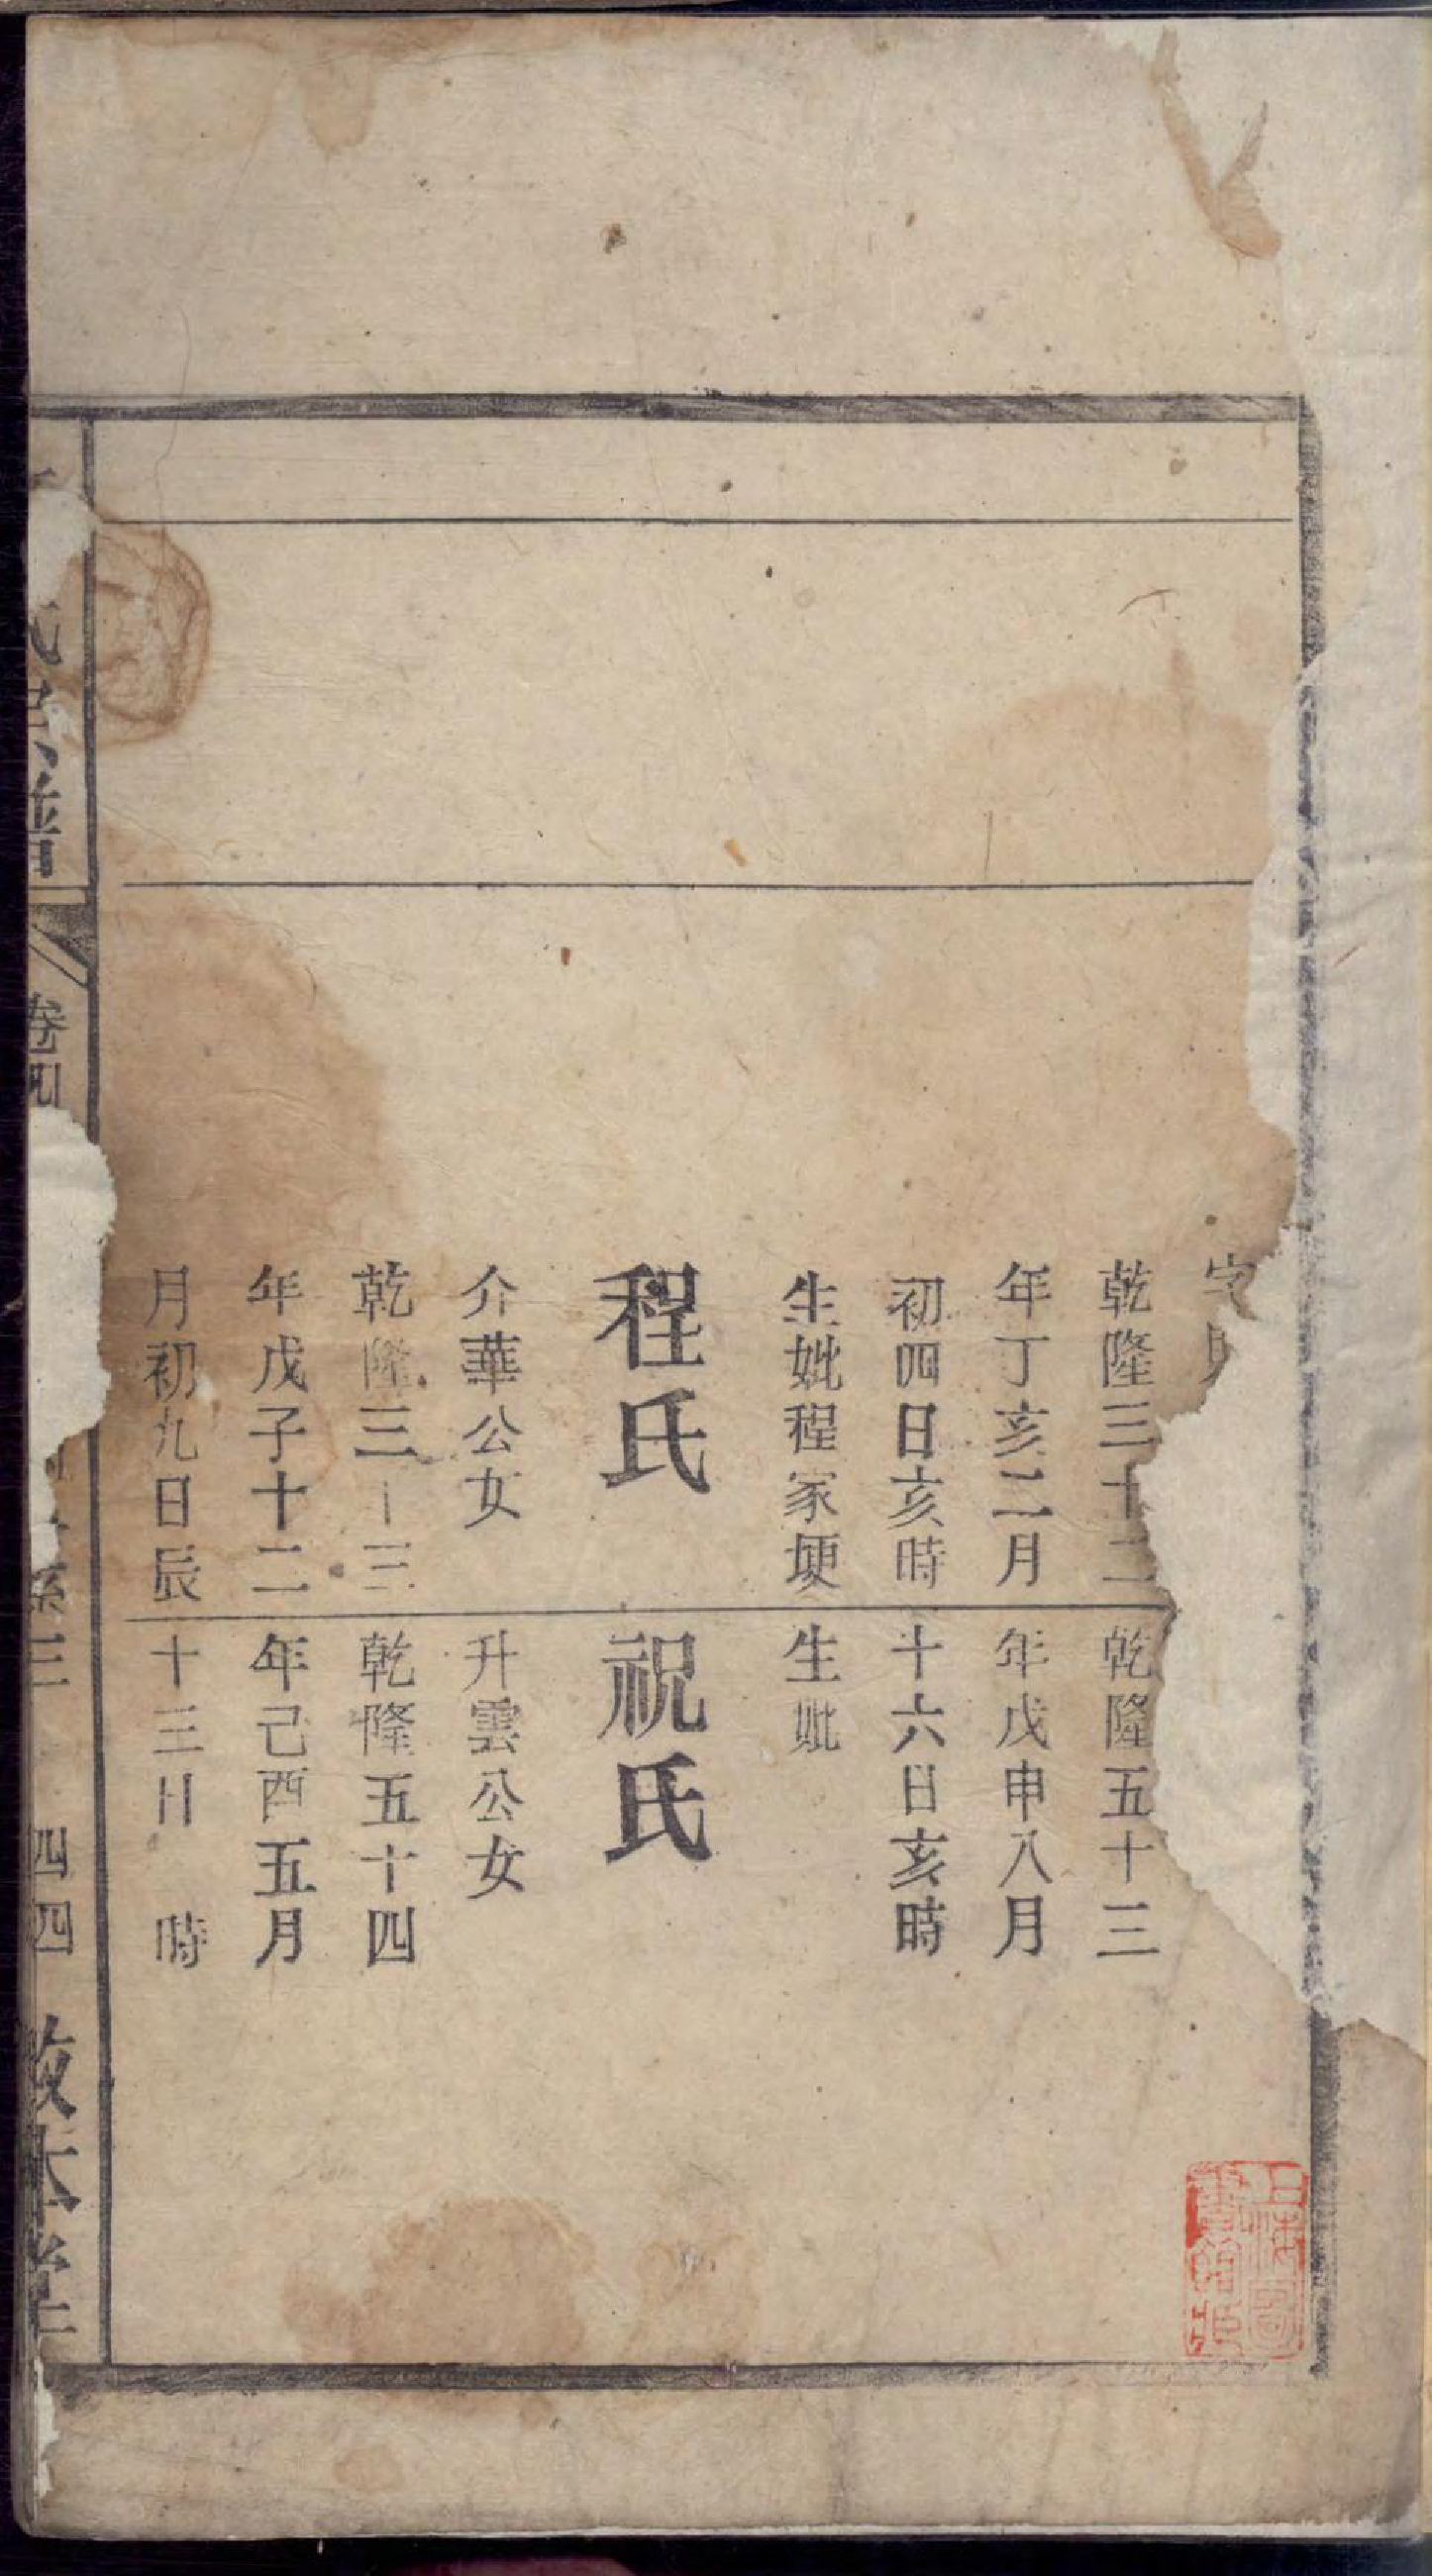 字
乾隆三十二
年丁亥二月
初四日亥時
生妣程家埂
程氏
介華公女
乾隆三十三
年戊子十二
月初九日辰
乾隆五十三
年戊申八月
十六日亥時
生妣
祝氏
升雲公女
乾隆五十四
年己酉五月
十三日 時
氏宗譜
卷四
系三
四四
敘本堂
上海圖書館藏